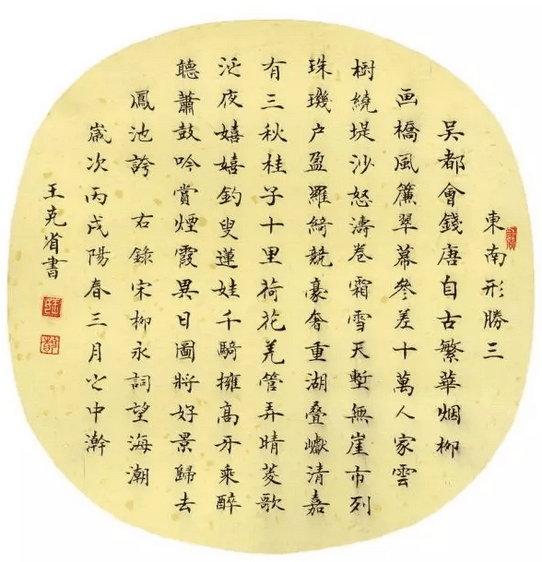 東南形勝三
吳都會錢唐自古繁華烟柳
画橋風簾翠幕參差十萬人家雲
樹繞堤沙怒濤卷霜雪天塹無崖市列
珠璣户盈羅綺競豪奢重湖叠巘清嘉
有三秋桂子十里荷花羌管弄晴菱歌
泛夜嬉嬉釣叟蓮娃千騎擁高牙乘醉
聽蕭鼓吟賞煙霞異日圖將好景歸去
鳳池誇 右錄宋柳永詞望海潮
歲次丙戌陽春三月之中澣
王克省書